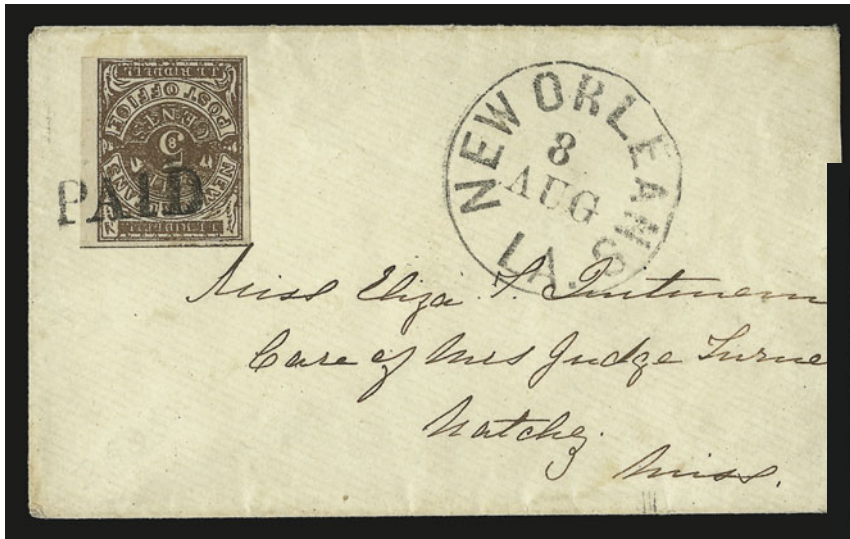 J.L. RIDDELL
POST OFFICE
5 CENTS
NEW ORLEANS
J.L. RIDDELL
PAID
NEW ORLEANS
8
AUG
LA.
Miss Eliza T. Quitmann
Care of Mrs Judge Turne
Natchez
Miss.